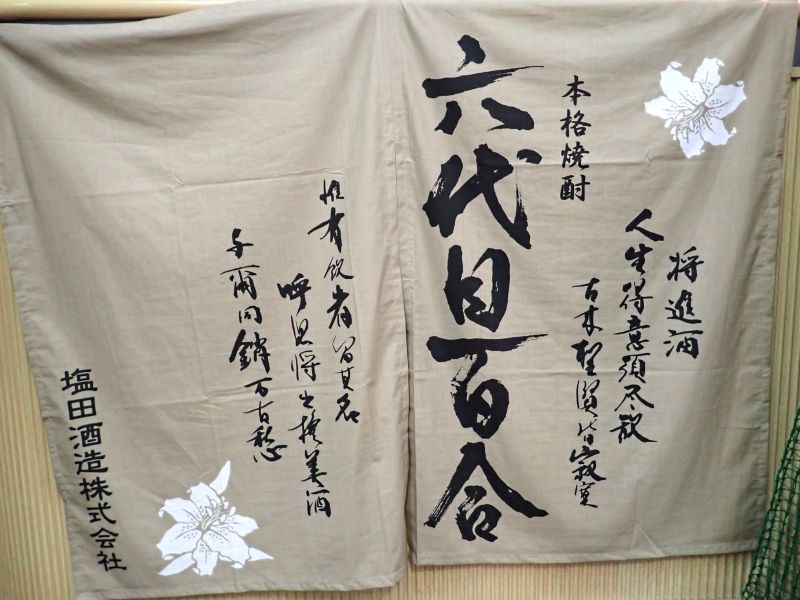 将進酒
人生得意須尽歓
古来聖賢皆寂寞
本格焼酎
六代目百合
惟有飲者留其名
呼児将出換美酒
与爾同銷万古愁
塩田酒造株式会社